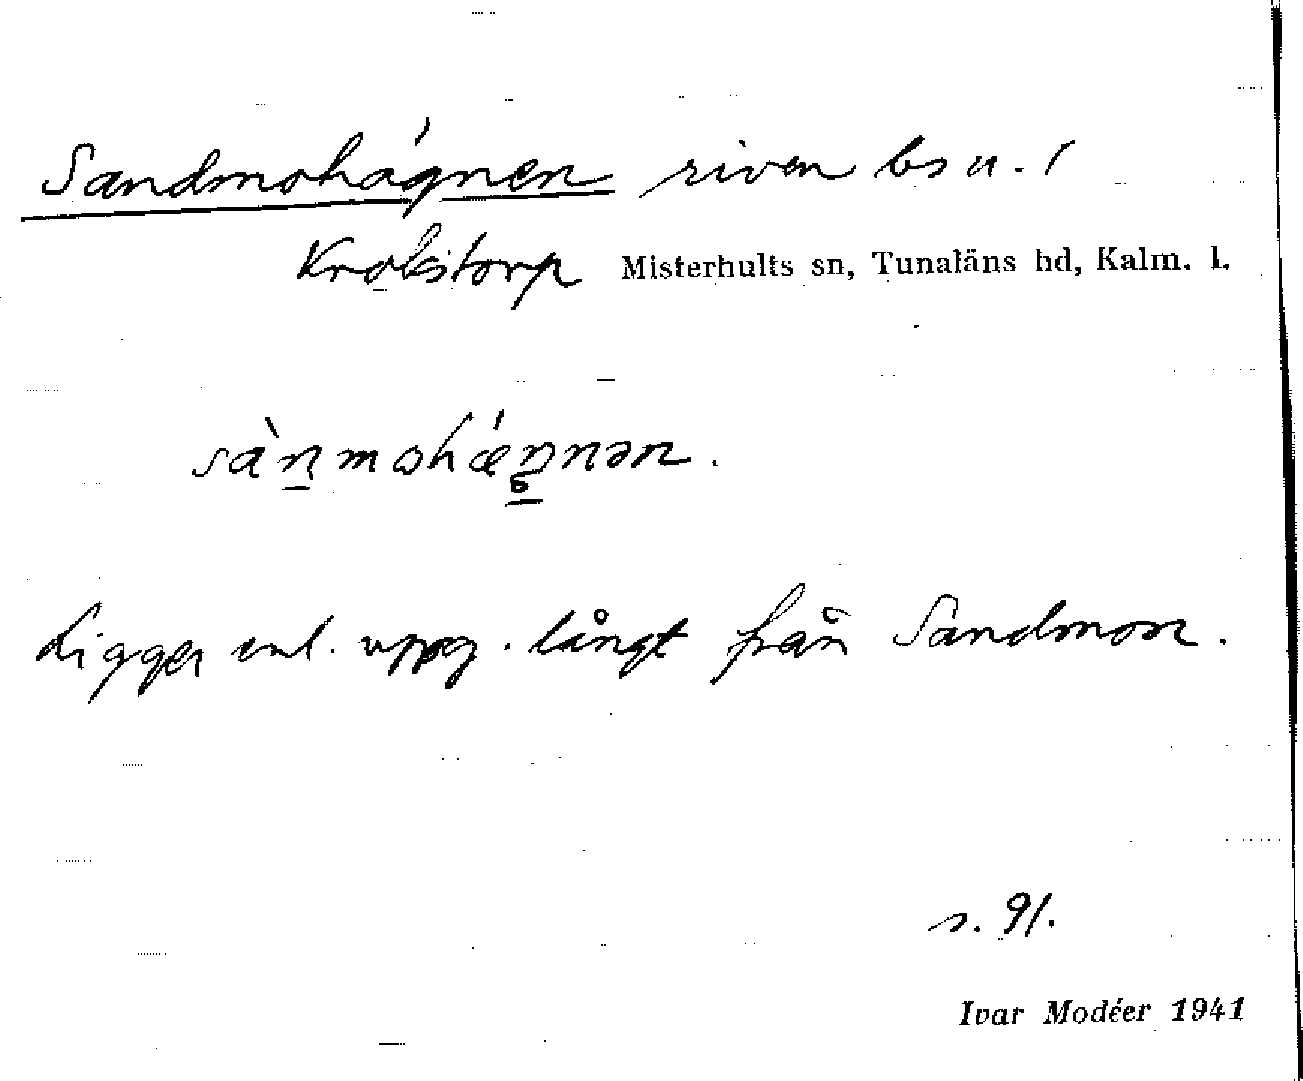 Sandmohägnen riven bs u. /
Krokstorp Misterhults sn, Tunaläns hd, Kalm. l.
Ligger enl. uppg. långt från Sandmon.
s. 91.
Ivar Modéer 1941